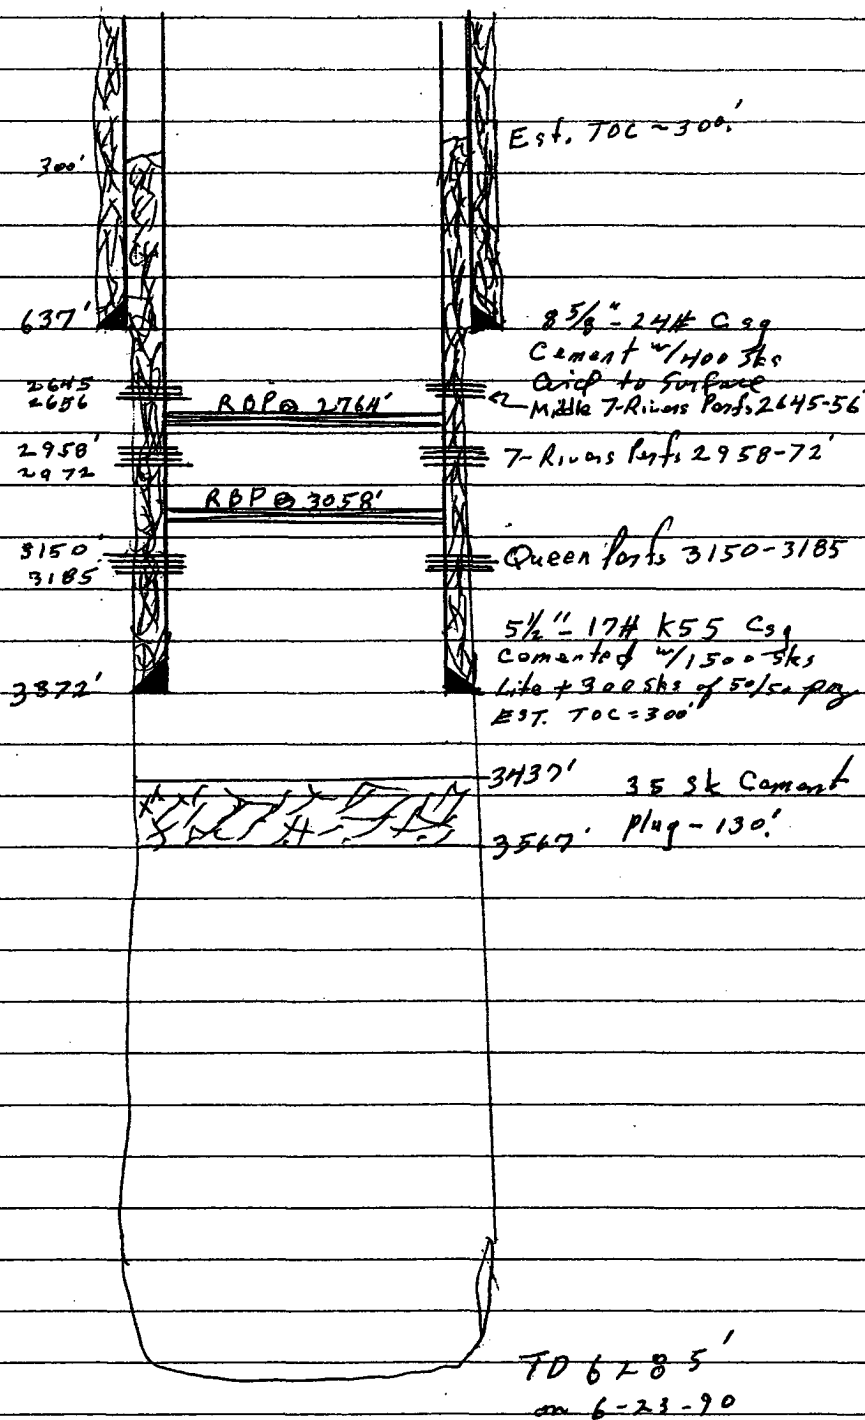 Est. TOC ~ 300'
300'
637'
8 5/8" - 24# Csg
Cement w/400 sks
Circ to Surface
2645
2656
RBP @ 2764'
Middle 7-Rivers Perfs 2645-56
2958'
2972
7-Rivers Perfs 2958-72'
RBP @ 3058'
3150'
3185'
Queen Perfs 3150-3185
5 1/2" - 17# K55 Csg
Cemented w/1500 sks
Lite + 300 sks of 50/50 poz
EST. TOC = 300'
3372'
3437'
35 sk Cement
Plug - 130'
3567'
TD 6285'
on 6-23-90